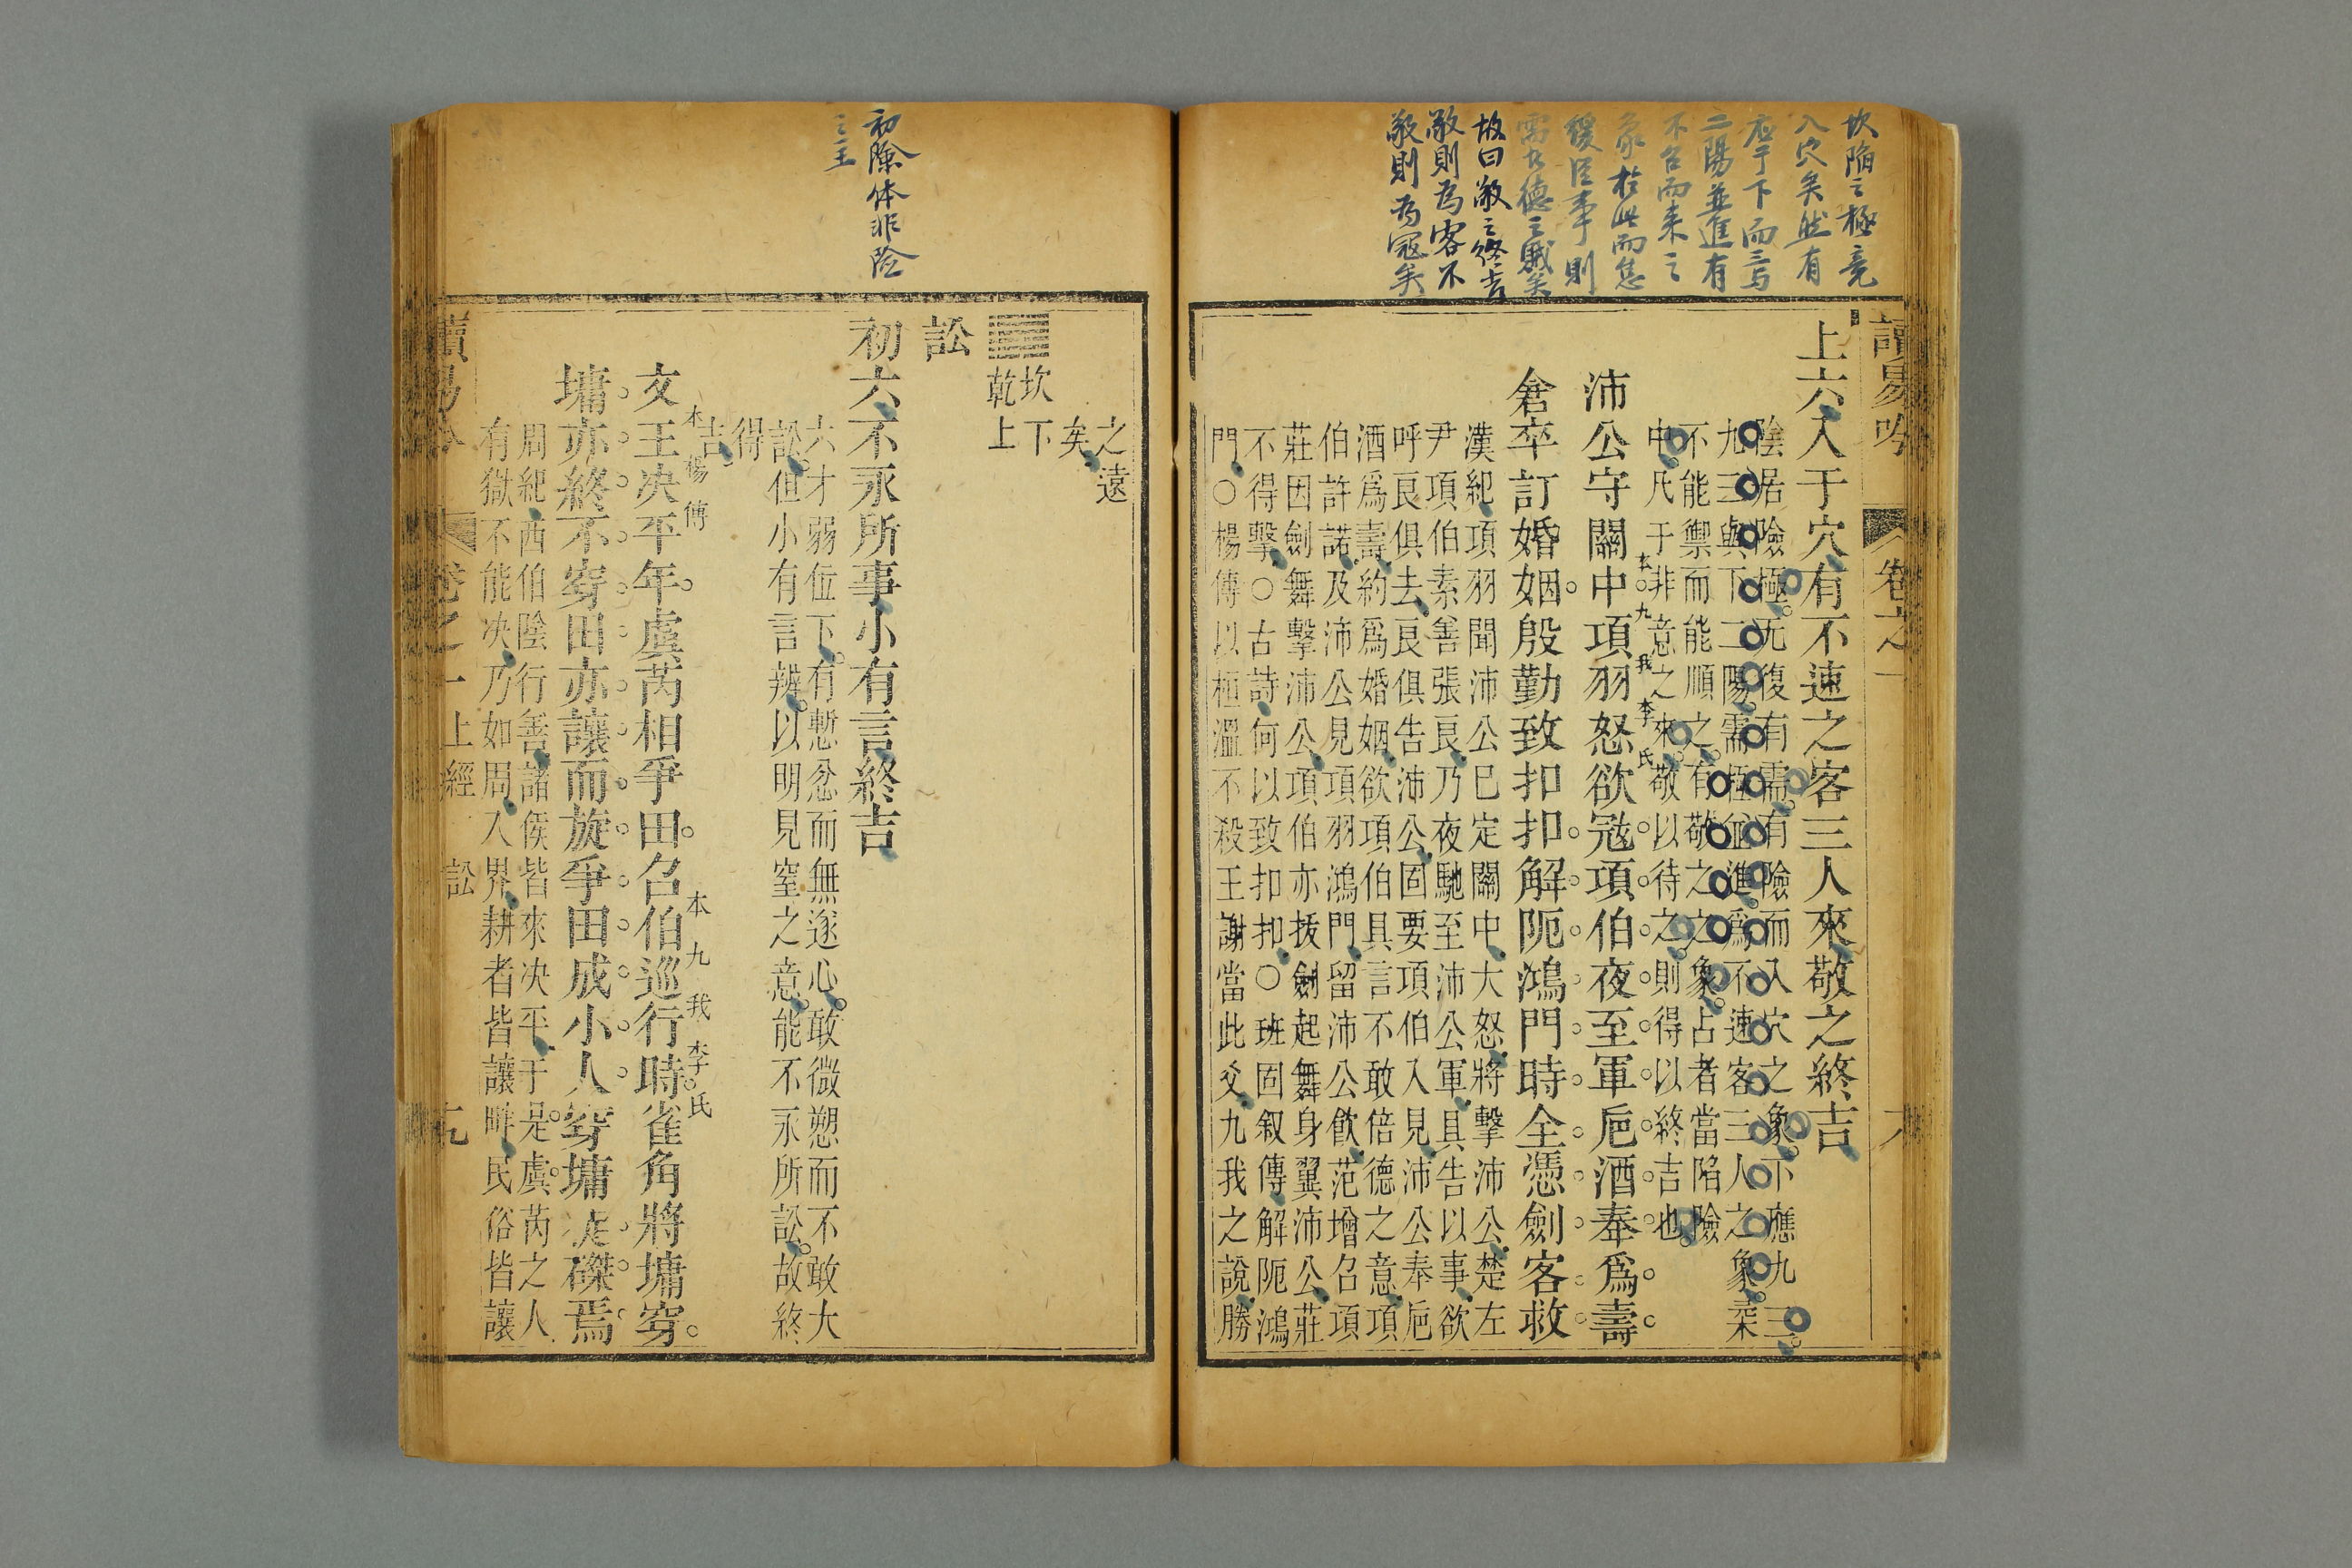 坎陷之極竟
入穴矣然有
應于下而三与
二陽並進有
不召而来之
象於此而怠
緩從事則
需九德之賊矣
故曰敬之終吉
敬則為客不
敬則為寇矣
讀易吟
卷之一
六
上六入于穴有不速之客三人來敬之終吉
陰居險極无復有需有險而入穴之象下應九三
九三與下二陽需極並進爲不速客三人之象柔
不能禦而能順之有敬之之象占者當陷險
中凡于非意之來敬以待之則得以終吉也
本九我李氏
沛公守關中項羽怒欲寇項伯夜至軍巵酒奉爲壽
倉卒訂婚姻殷勤致扣扣解阨鴻門時全憑劍客救
漢紀項羽聞沛公已定關中大怒將擊沛公楚左
尹項伯素善張良乃夜馳至沛公軍具告以事欲
呼良俱去良俱告沛公固要項伯入見沛公奉巵
酒爲壽約爲婚姻欲項伯具言不敢倍德之意項
伯許諾及沛公見項羽鴻門留沛公飲范增召項
莊因劍舞擊沛公項伯亦拔劍起舞身翼沛公莊
不得擊○古詩何以致扣扣○班固叙傳解阨鴻
門○楊傳以桓溫不殺王謝當此爻九我之說勝
初除体非险
之王
之遠
矣
坎下
乾上
訟
初六不永所事小有言終吉
六才弱位下有慙忿而無遂心敢微愬而不敢大
訟但小有言辨以明見窒之意能不永所訟故終
得
吉
本楊傳
本九我李氏
文王决平年虞芮相爭田召伯巡行時雀角將墉穿
墉亦終不穿田亦讓而旋爭田成小人穿墉走磔焉
周紀西伯陰行善諸侯皆來决平于是虞芮之人
有獄不能决乃如周入界耕者皆讓畔民俗皆讓
讀易吟
卷之一
上經
訟
九